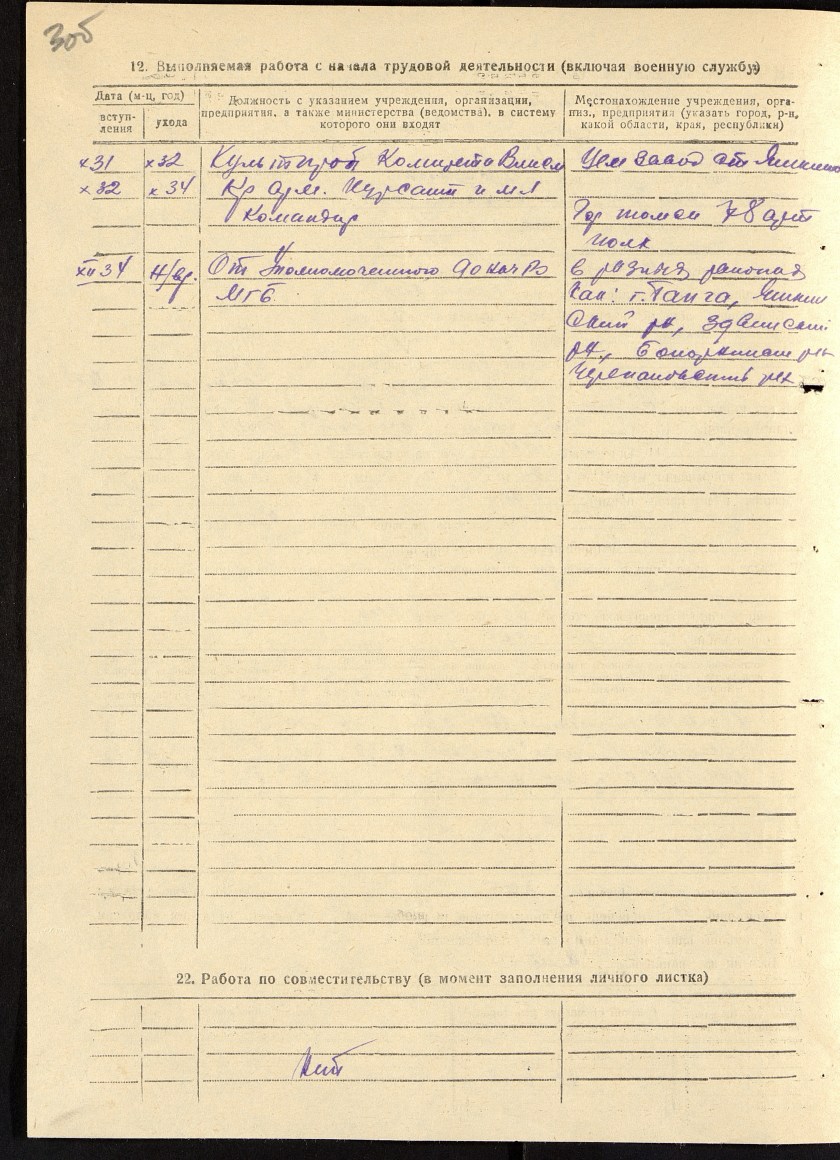 305
12. Выполняемая работа с начала трудовой деятельности (включая военную службу)
Дата (м-ц, год)
вступ-
ления
ухода
Должность с указанием учреждения, организации,
предприятия, а также министерства (ведомства), в систему
которого они входят
Местонахождение учреждения, орга-
низ., предприятия (указать город, р-н,
какой области, края, республики)
x 31 x 32 Культпроп Комитета Цем завод ст
x 32 x 34 Кр арм. Курсант и мл
Командир Гор томск 78 арт
полк
XII 34 Н/вр. От Уполномоченного до нач РО в разных районах
МГБ. Как: г. Тайга,
ский рн,
рн,
Черепановский рн
22. Работа по совместительству (в момент заполнения личного листка)
Нет